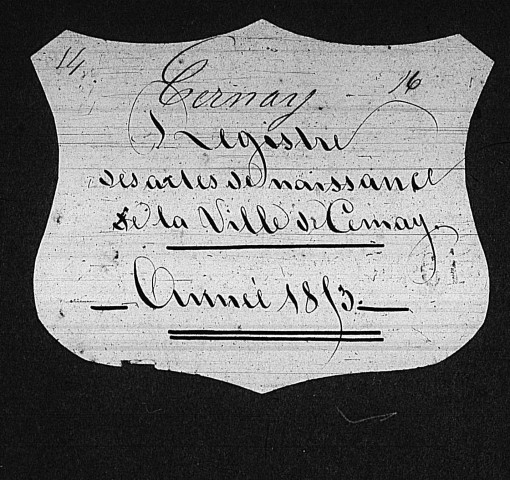 14
Cernay 16
Registre
des actes de naissance
de la Ville de Cernay.
Année 1853.